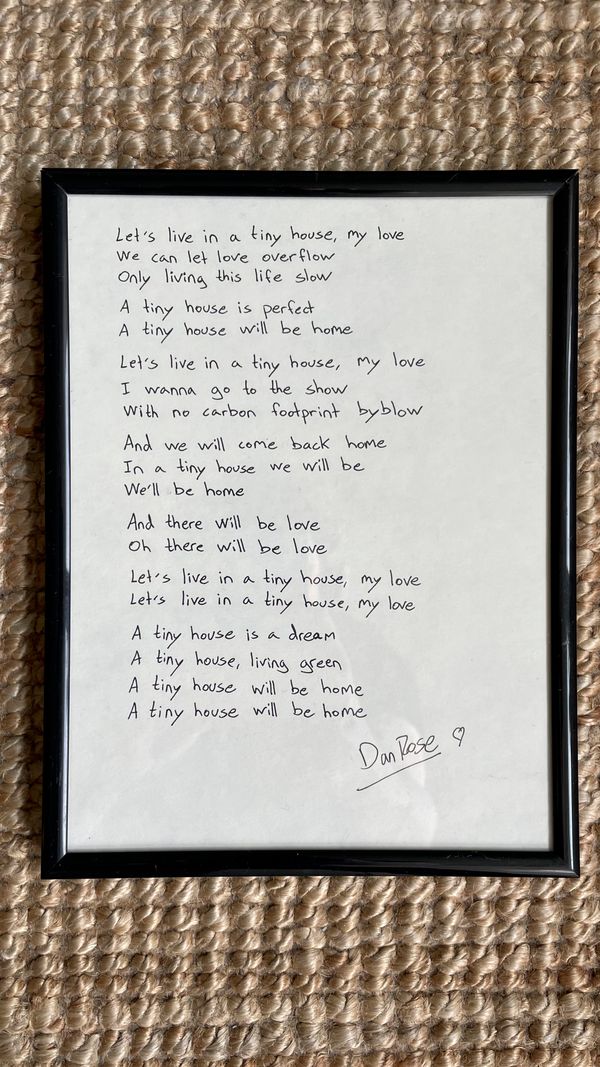 Let's live in a tiny house, my love
We can let love overflow
Only living this life slow
A tiny house is perfect
A tiny house will be home
Let's live in a tiny house, my love
I wanna go to the show
With no carbon footprint byblow
And we will come back home
In a tiny house we will be
We'll be home
And there will be love
Oh there will be love
Let's live in a tiny house, my love
Let's live in a tiny house, my love
A tiny house is a dream
A tiny house, living green
A tiny house will be home
A tiny house will be home
Dan Rose ♡